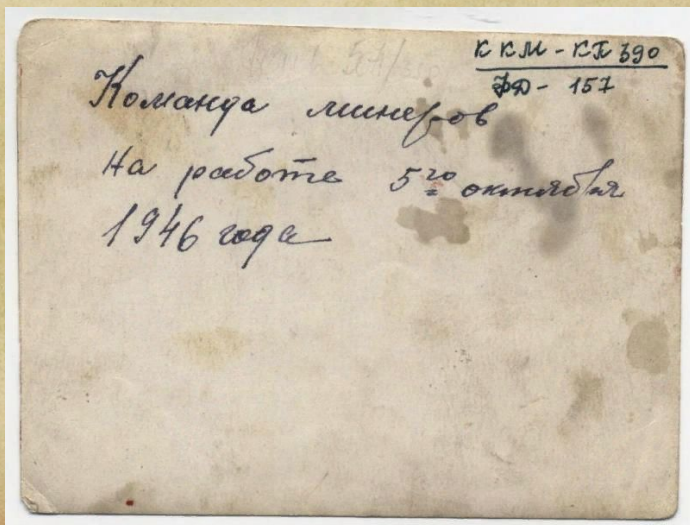 ККМ-КП 390
ФД- 157
Команда минеров
На работе 5го октября
1946 года